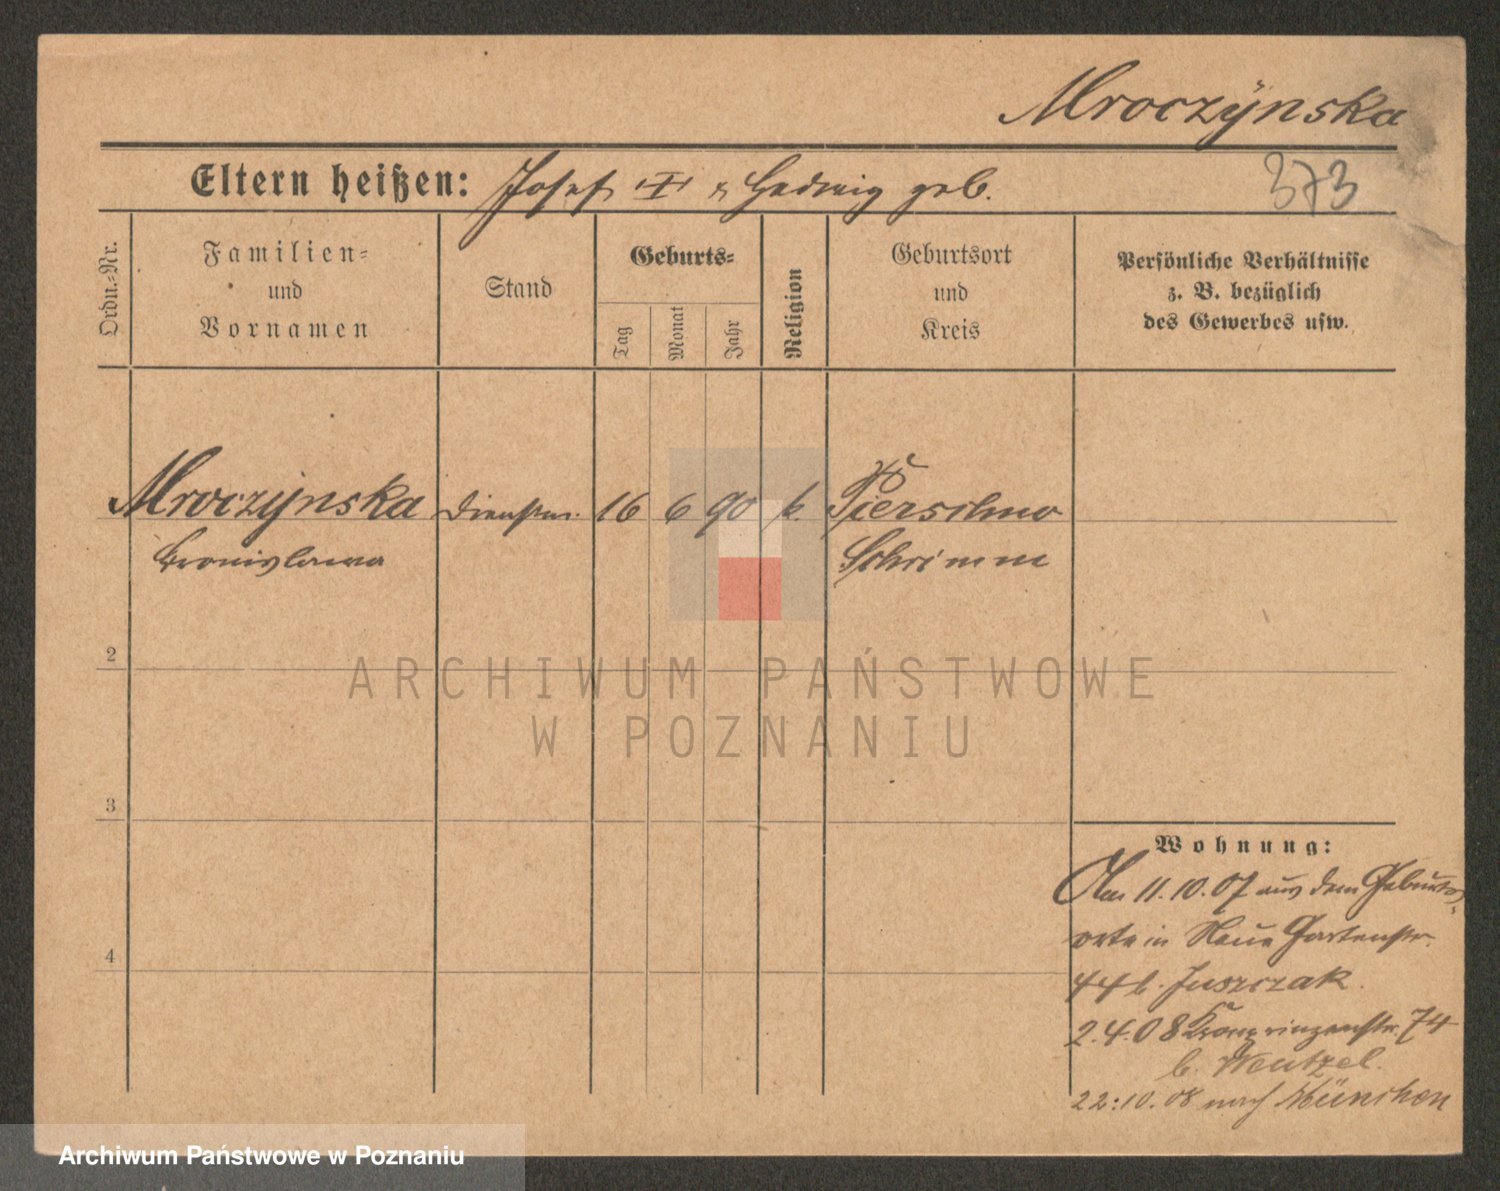 Mroczÿnska
Eltern heißen: Josef † u. Hedwig geb.
373
Ordn.-Nr.
Familien-
und
Vornamen
Stand
Geburts-
Tag
Monat
Jahr
Religion
Geburtsort
und
Kreis
Persönliche Verhältnisse
z. B. bezüglich
des Gewerbes usw.
Mroczÿnska Dienstm. 16 6 90 k. Pierschno
Bronislawa Schrimm
ARCHIWUM PAŃSTWOWE
W POZNANIU
2
3
4
Wohnung:
Am 11.10.07 aus dem Geburts-
orte in Neue Gartenstr.
44 b. Juszczak.
2.4.08 Kronprinzenstr. 74
b. Wentzel.
22.10.08 nach München
Archiwum Państwowe w Poznaniu